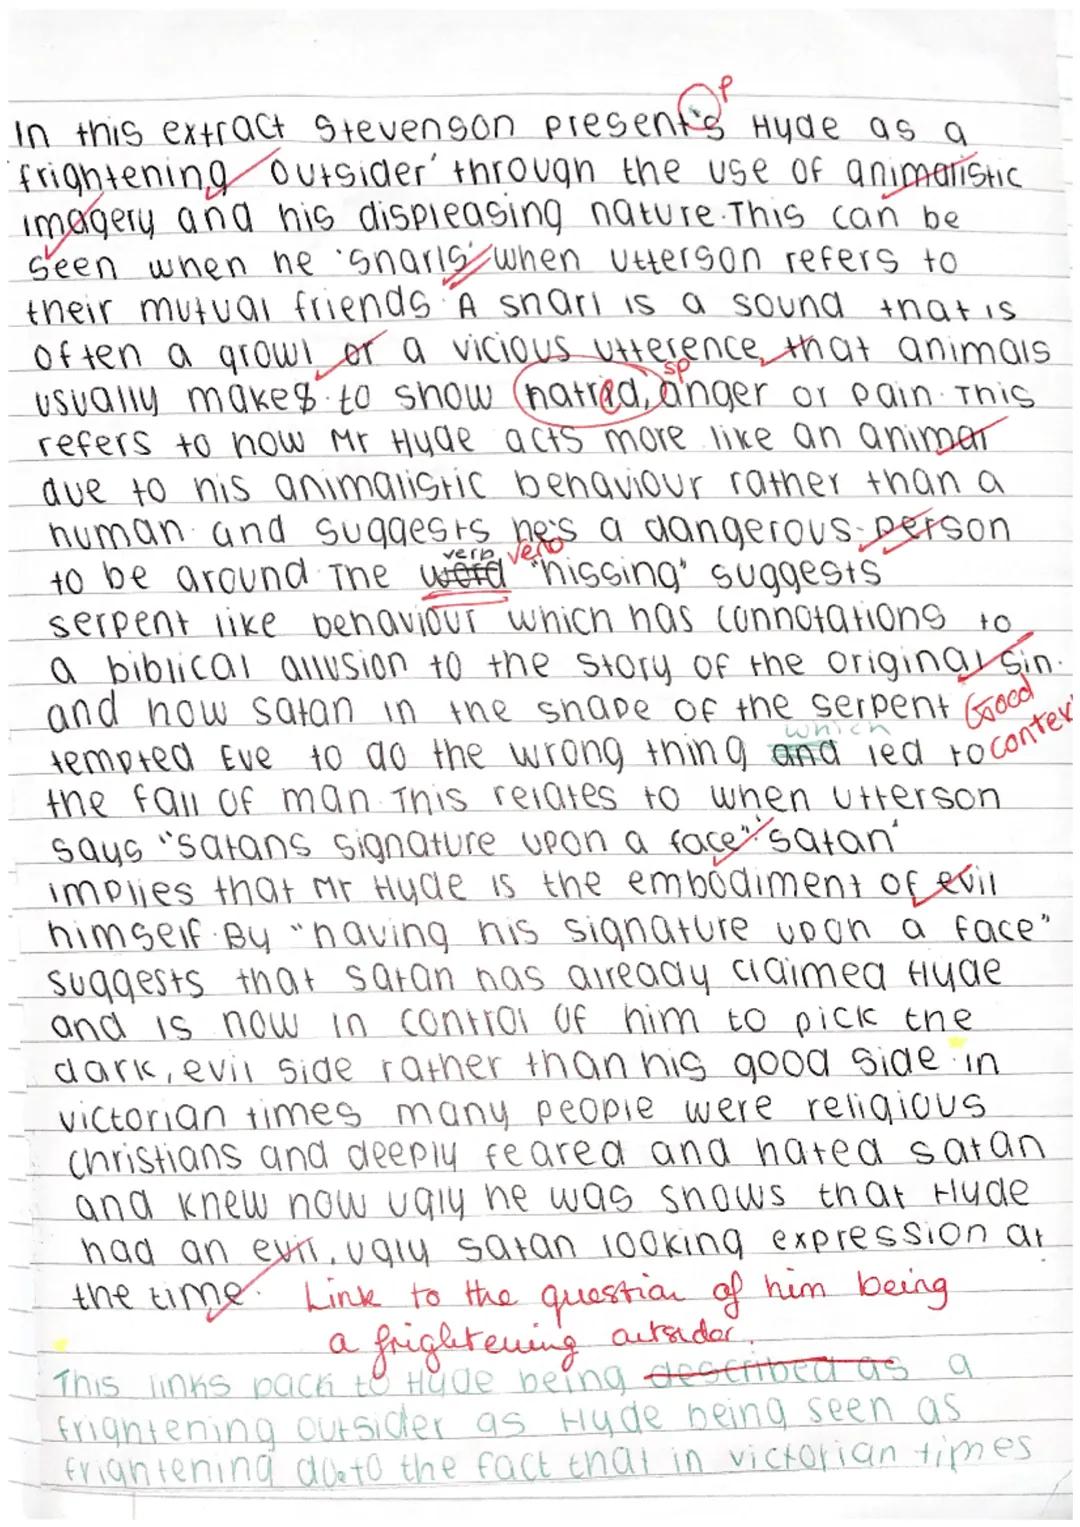 P
In this extract Stevenson present's Hyde as a
frightening outsider' through the use of animalistic
imagery and his displeasing nature. This can be
seen when he 'snarls' when Utterson refers to
their mutual friends. A snarl is a sound that is
often a growl or a vicious utterence, that animals
sp
usually makes to show hatred, anger or pain. This
refers to how Mr Hyde acts more like an animal
due to his animalistic behaviour rather than a
human. and suggests he's a dangerous person
verb verb
to be around. The word "hissing' suggests
serpent like behaviour which has connotations to
a biblical allusion to the story of the original sin.
and how satan in the shape of the serpent Good
which
tempted Eve to do the wrong thing and led to contex
the fall of man. This relates to when Utterson
says "satans signature upon a face". 'satan'
implies that Mr Hyde is the embodiment of evil
himself. By "having his signature upon a face"
suggests that satan has already claimed Hyde
and is now in control of him to pick the
dark, evil side rather than his good side. in
victorian times many people were religious
christians and deeply feared and hated satan
and knew how ugly he was shows that Hyde
had an evil, ugly satan looking expression at
the time. Link to the question of him being
a frightening outsider.
This links back to Hyde being described as a
frightening outsider as Hyde being seen as
frightening due to the fact that in victorian times